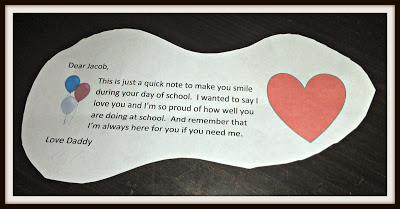 Dear Jacob,
This is just a quick note to make you smile
during your day of school.  I wanted to say I
love you and I'm so proud of how well you
are doing at school.  And remember that
I'm always here for you if you need me.
Love Daddy